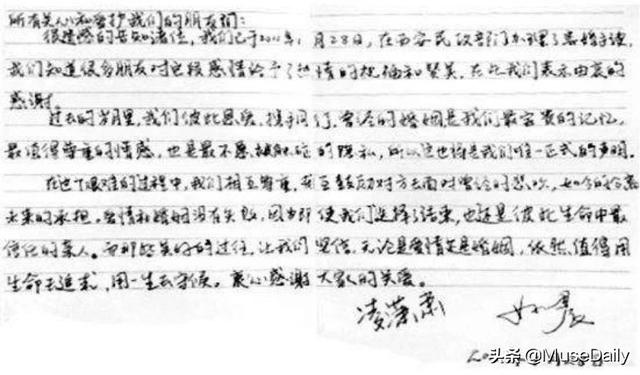 所有关心和爱护我们的朋友们：
很遗憾的告知诸位，我们已于2011年1月28日，在西安民政部门办理了离婚手续，
我们知道很多朋友对这段感情给予了热情的祝福和赞美，在此我们表示由衷的
感谢。
过去的岁月里，我们彼此恩爱，携手同行，曾经的婚姻是我们最宝贵的记忆，
最值得尊重的情感，也是最不愿被触碰的隐私，所以这也将是我们唯一正式的声明。
在这个艰难的过程中，我们相互尊重，相互鼓励对方去面对曾经的悲欢，如今的
未来的承担。爱情和婚姻没有失败，因为即使我们选择了结束，也还是彼此生命中最
信任的亲人。而那些美好的过往，让我们坚信，无论是爱情还是婚姻，依然值得用
生命去追求，用一生去守候。衷心感谢大家的关爱。
凌潇肃 姚晨
头条 @MuseDaily